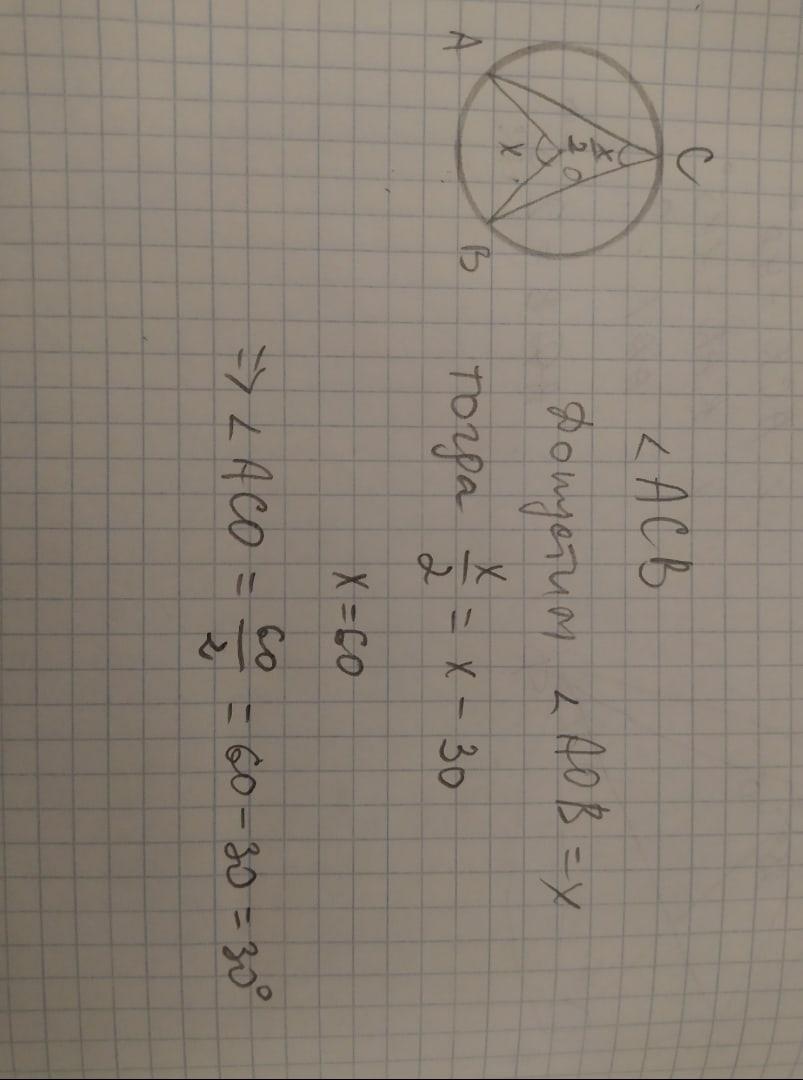 C
A
B
O
x/2
x
∠ACB
Допустим ∠AOB = x
тогда x/2 = x - 30
x = 60
=> ∠ACO = 60/2 = 60 - 30 = 30°